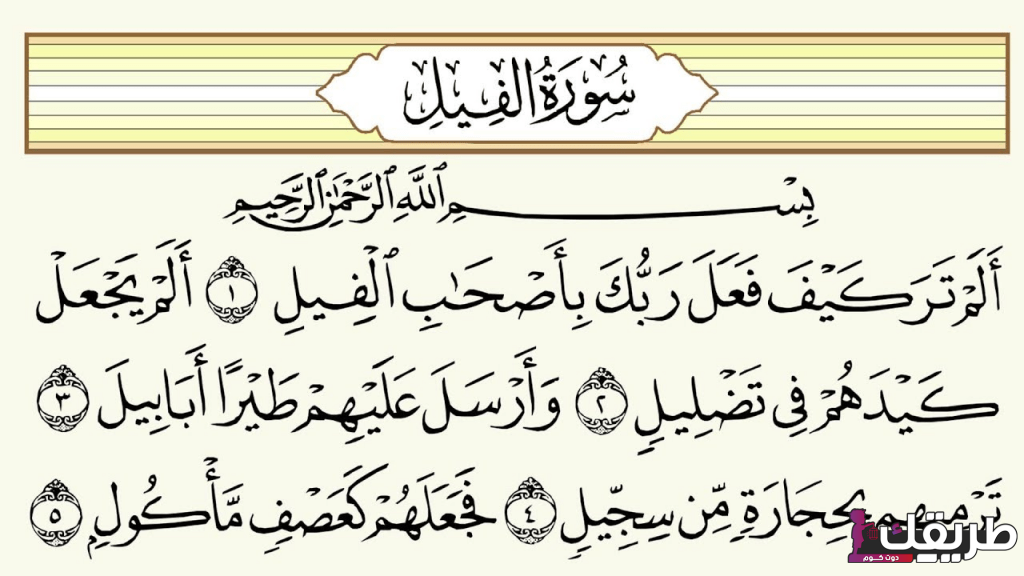 سُورَةُ الفِيلِ
بِسْمِ ٱللَّهِ ٱلرَّحْمَٰنِ ٱلرَّحِيمِ
أَلَمْ تَرَ كَيْفَ فَعَلَ رَبُّكَ بِأَصْحَٰبِ ٱلْفِيلِ ١ أَلَمْ يَجْعَلْ
كَيْدَهُمْ فِي تَضْلِيلٍ ٢ وَأَرْسَلَ عَلَيْهِمْ طَيْرًا أَبَابِيلَ ٣
تَرْمِيهِم بِحِجَارَةٍ مِّن سِجِّيلٍ ٤ فَجَعَلَهُمْ كَعَصْفٍ مَّأْكُولٍ ٥
طريقك
دوت كوم